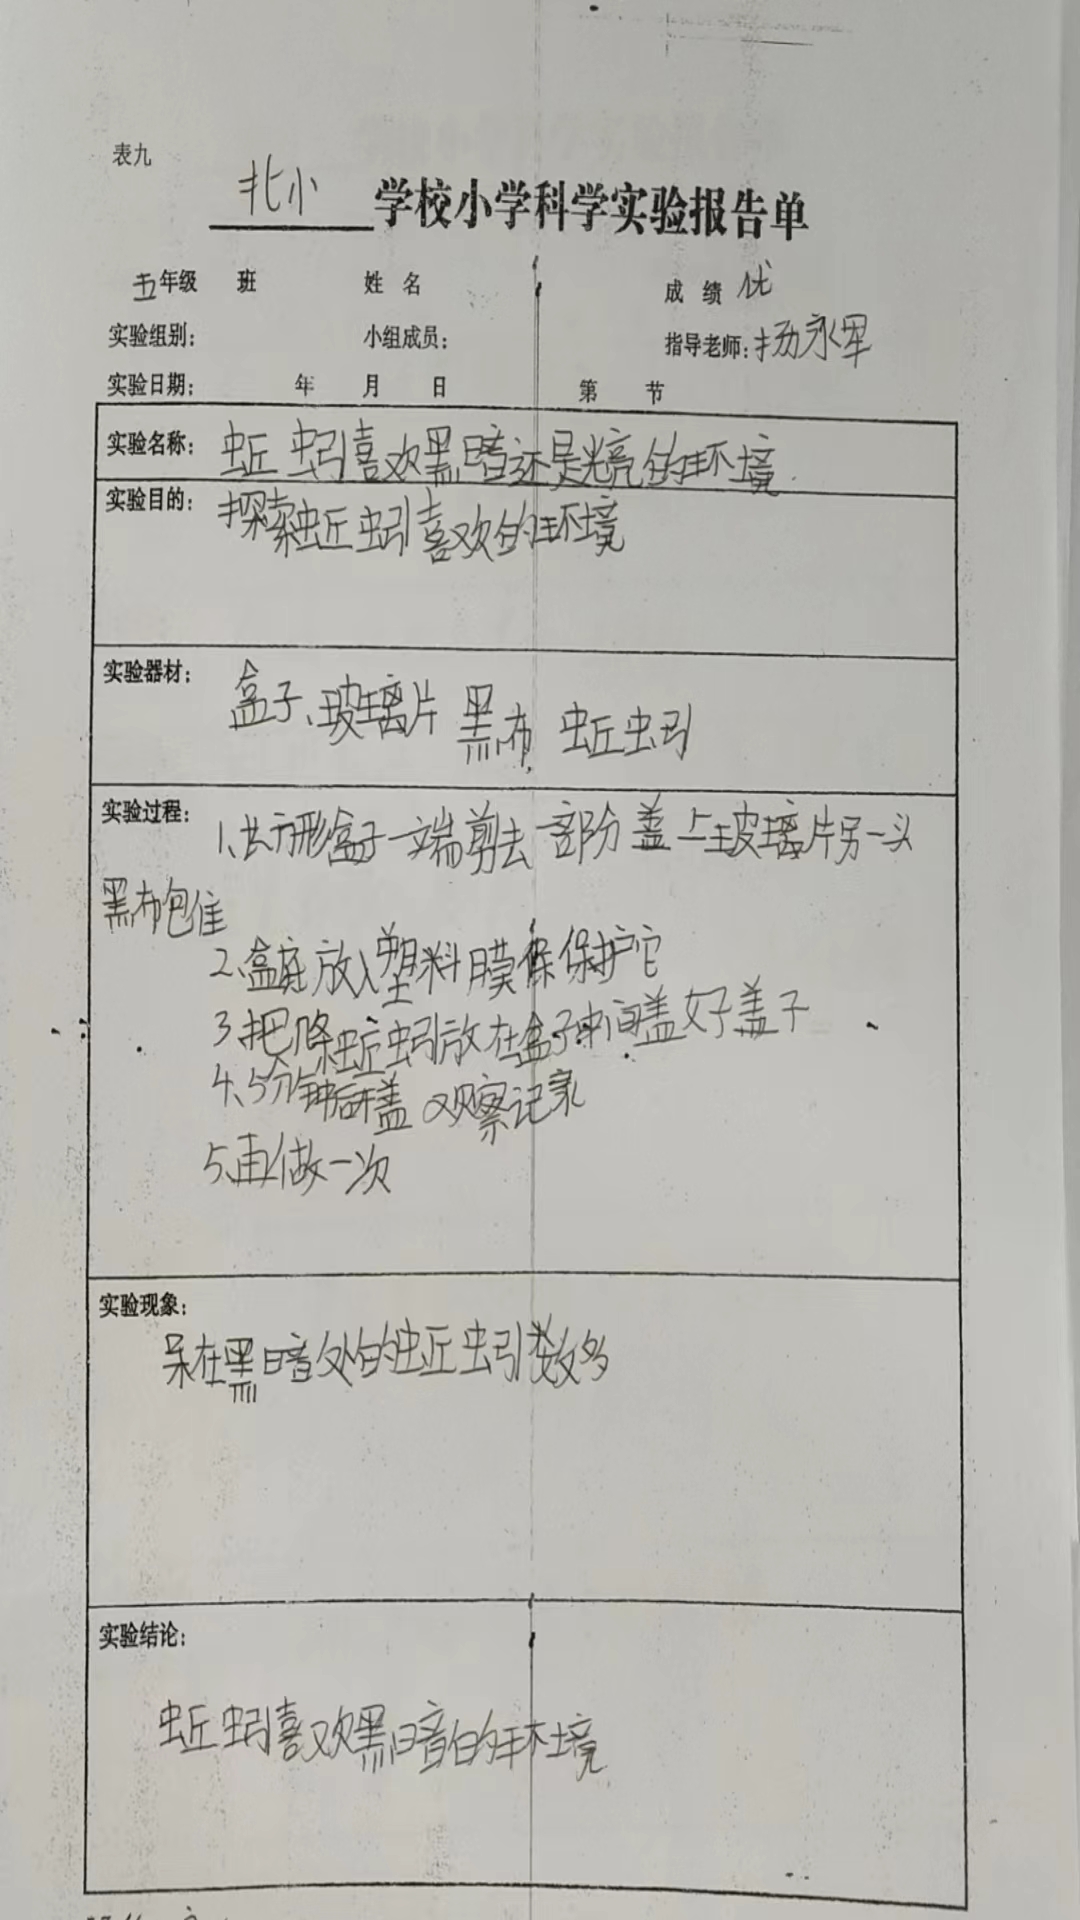 表九
北小 学校小学科学实验报告单
五年级 班 姓 名 成 绩 优
实验组别： 小组成员： 指导老师：杨永军
实验日期： 年 月 日 第 节
实验名称：蚯蚓喜欢黑暗还是光亮的环境.
实验目的：探索蚯蚓喜欢的环境
实验器材：盒子、玻璃片 黑布 蚯蚓
实验过程：1、长方形盒子一端剪去一部分盖上玻璃片另一头
黑布包住
2、盒底放入塑料膜保保护它
3、把 条蚯蚓放在盒子中间盖好盖子
4、5分钟后开盖 观察记录
5、再做一次
实验现象：
呆在黑暗处的蚯蚓数多
实验结论：
蚯蚓喜欢黑暗的环境